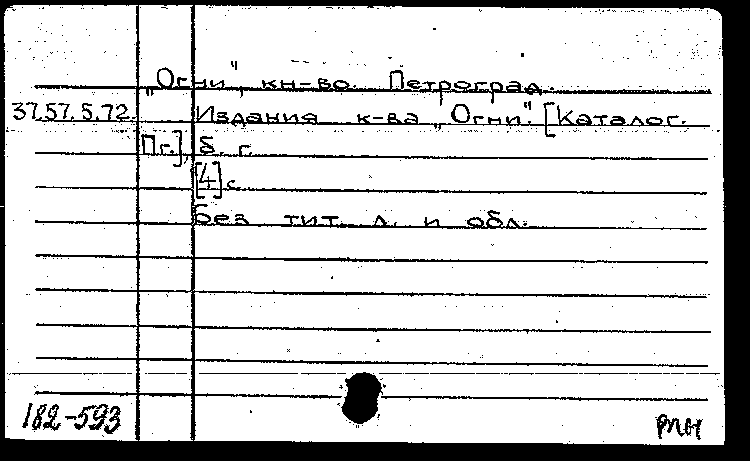 „Огни", кн-во. Петроград.
37.57.5.72. Издания к-ва „Огни". [Каталог.
Пг.], б. г.
[4] с.
Без тит. л. и обл.
182-593